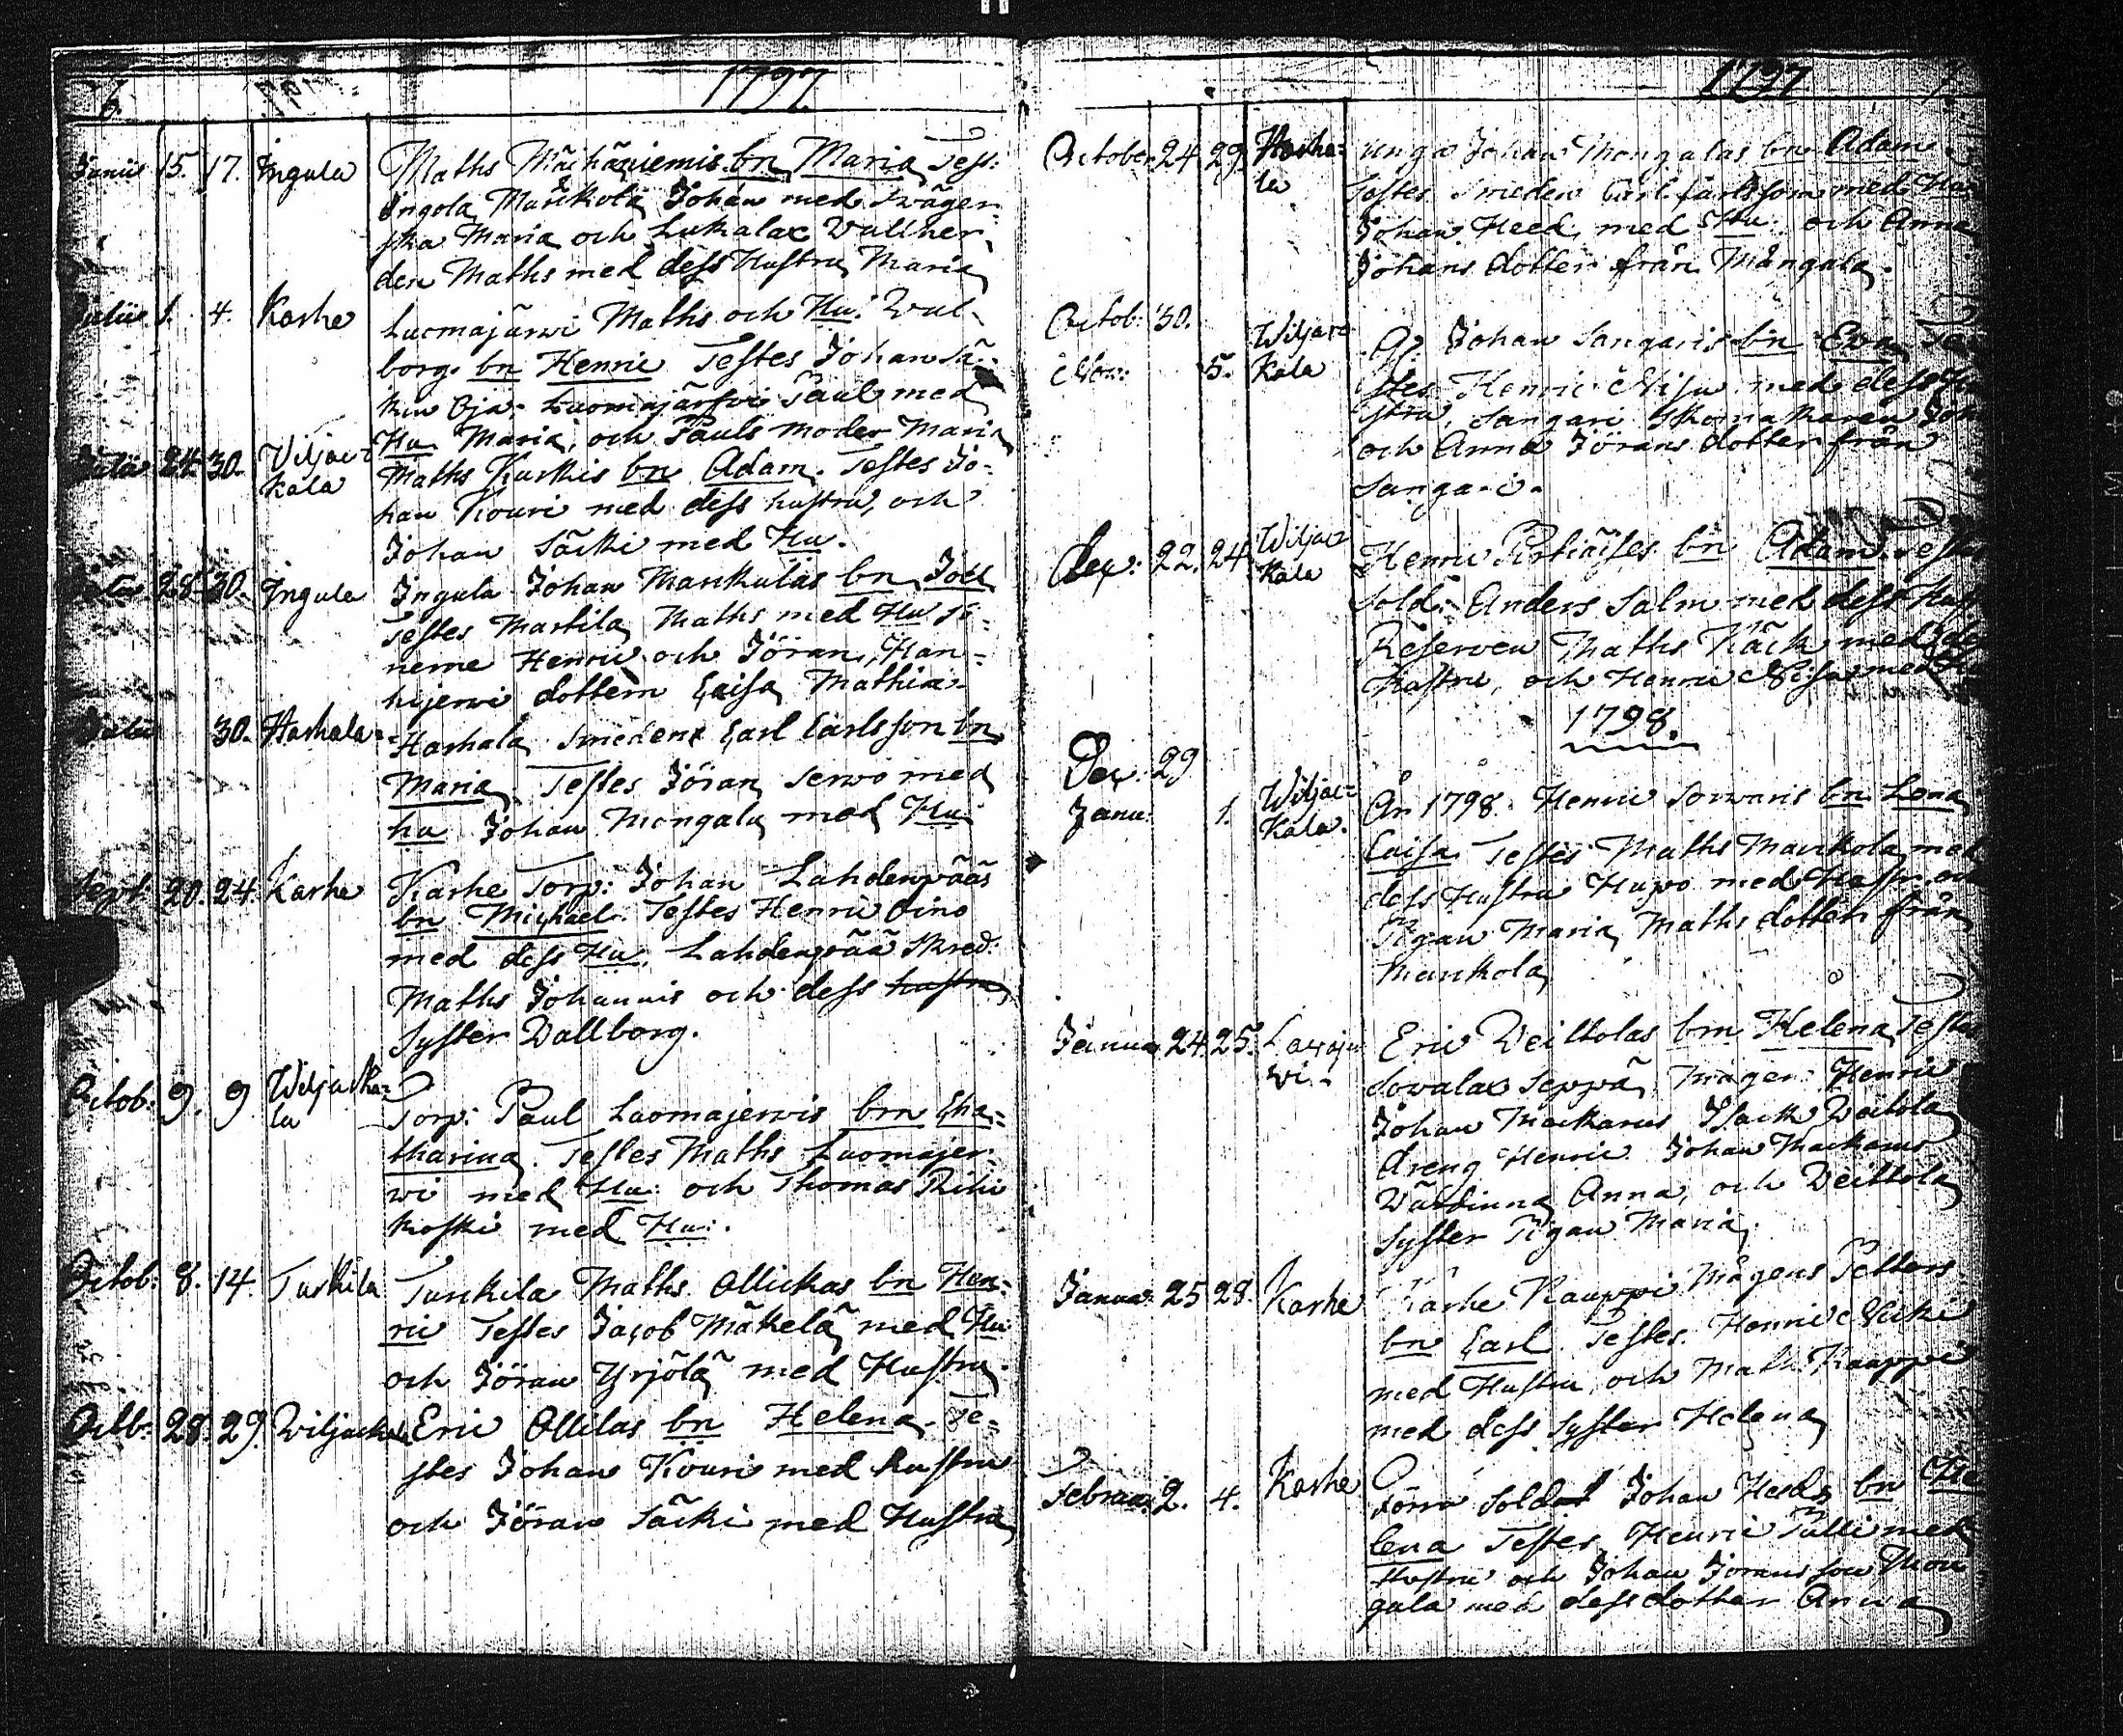 6.
1797
Junii 15. 17. Ingula Maths Mäihäniemis bn Maria Test:
Ingola Manckola Johan med swäger-
ska Maria och Lukalax Vallher-
den Maths med dess Hustru Maria
Julii 1. 4. Karhe Luomajärwi Maths och Hu: Wal-
borg. bn Henric Testes Johan
Oja. Luomajärfwi Paul med
Hu Maria, och Pauls moder Maria
Julii 24. 30. Viljac-
kala Maths Kurkis bn Adam. Testes Jo-
han Kouri med dess hustru, och
Johan Säcki med Hu.
28. 30. Ingula Ingula Johan Manckulas bn Joel
Testes Martila Maths med Hu
Henric och Jöran, Han-
hijerwi dottern Caisa Mathiæ
Julii 30. Harhala Harhala Smedens Carl Carlsson bn
Maria Testes Jöran Serwo med
hu Johan Mongala med Hu
Sept. 20. 24. Karhe Karhe Torp: Johan Lahdenpääs
bn Michael. Testes Henric Oino
med dess Hu. Lahdenpää Skred:
Maths Johannis och dess hustru
Syster Vallborg.
Octob: 9. 9 Wiljacka-
la Torp: Paul Luomajerwis brn Cha-
tharina. Testes Maths Luomajer-
wi med Hu: och Thomas Riihi
koski med Hu:.
Octob: 8. 14. Turkila Turckila Maths Ollickas bn Hen-
ric Testes Jacob Mäkelä med Hu
och Jöran Yrjölä med Hustru.
Octb: 28. 29. Wiljackala Eric Ollilas bn Helena. Te-
stes Johan Kouri med hustru
och Jöran Säcki med Hustru
1797
7.
October 24 29 Harha-
la unga Johan Mongalas bn Adam.
Testes Smeden Carl Carlsson med
Johan Heed, med Hu: och Anna
Johans dotter från Mångala.
Octob: 30.
Nov: 5. Wiljac-
kala Johan Sangaris bn Eva Te
stes Henric Nisu med dess
stru, Sangari Skomakaren
och Anna Jörans dotter från
Sangari.
Dec: 22. 24 Wiljac-
kala Henric Pirtiäises bn Adam
Sold: Anders Salm med dess
Reserven Maths Käck med
hustru, och Henric Nisu med
1798.
Dec: 29
Janu: 1. Wiljac-
kala. År 1798. Henric Sorwaris bn Lena
Caisa Testes Maths Manckola med
dess Hustru Hupo med
Pigan Maria Maths dotter från
Manckola
Janua 24. 25. Eric Veittolas brn Helena
Sovalax Seppä, mågen Henric
Johan Mackarus Isack Veitola
dreng Henric Johan Mackarus
Värdinna Anna, och Veittola
Syster Pigan Maria.
Janua: 25 28. Karhe Karhe Kauppi mågens Petters
bn Carl. Testes. Henric
med Hustru, och Math: Kauppi
med dess Syster Helena
Februa: 2. 4. Karhe Förra Soldat Johan Heeds bn He
lena Testes Henric Tulli med
Hustru och Johan Joransson Mon
gala med dess dotter Anna